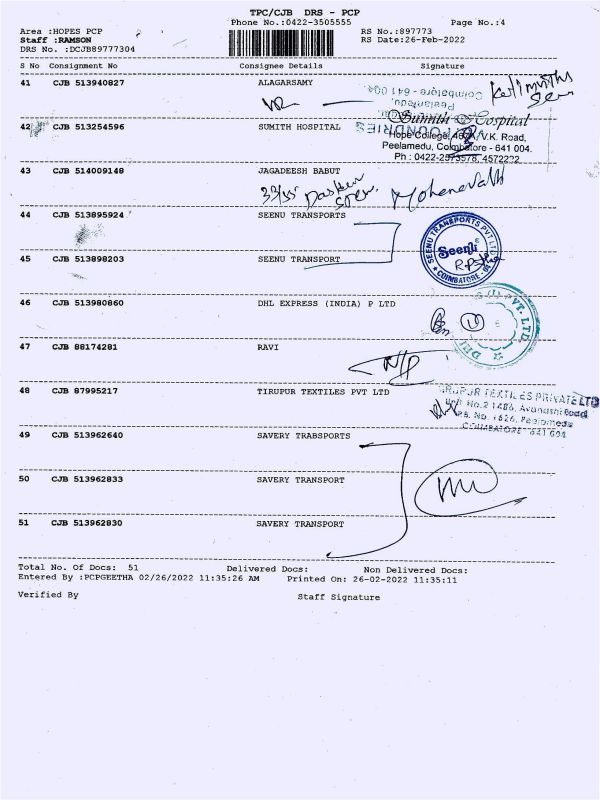 TPC/CJB DRS - PCP
Phone No.:0422-3505555 Page No.:4
Area :HOPES PCP RS No.:897773
Staff :RAMSON RS Date:26-Feb-2022
DRS No. :DCJB89777304
S No Consignment No Consignee Details Signature
41 CJB 513940827 ALAGARSAMY
Coimbatore - 641 004.
Peelamedu,
42 CJB 513254596 SUMITH HOSPITAL
FOUNDRIES
Sumith Hospital
Hope College, V.K. Road,
Peelamedu, Coimbatore - 641 004.
Ph : 0422-2573578, 4572222
43 CJB 514009148 JAGADEESH BABUT
44 CJB 513895924 SEENU TRANSPORTS
SEENU TRANSPORTS PVT LTD
Seenu
COIMBATORE
45 CJB 513898203 SEENU TRANSPORT
46 CJB 513980860 DHL EXPRESS (INDIA) P LTD
PVT. LTD.
DHL
47 CJB 88174281 RAVI
48 CJB 87995217 TIRUPUR TEXTILES PVT LTD
TIRUPUR TEXTILES PRIVATE LTD
Unit No.2 1486, Avanashi Road
P.B. No. 1626, Peelamedu
COIMBATORE - 641 004
49 CJB 513962640 SAVERY TRABSPORTS
50 CJB 513962833 SAVERY TRANSPORT
51 CJB 513962830 SAVERY TRANSPORT
Total No. Of Docs: 51 Delivered Docs: Non Delivered Docs:
Entered By :PCPGEETHA 02/26/2022 11:35:26 AM Printed On: 26-02-2022 11:35:11
Verified By Staff Signature